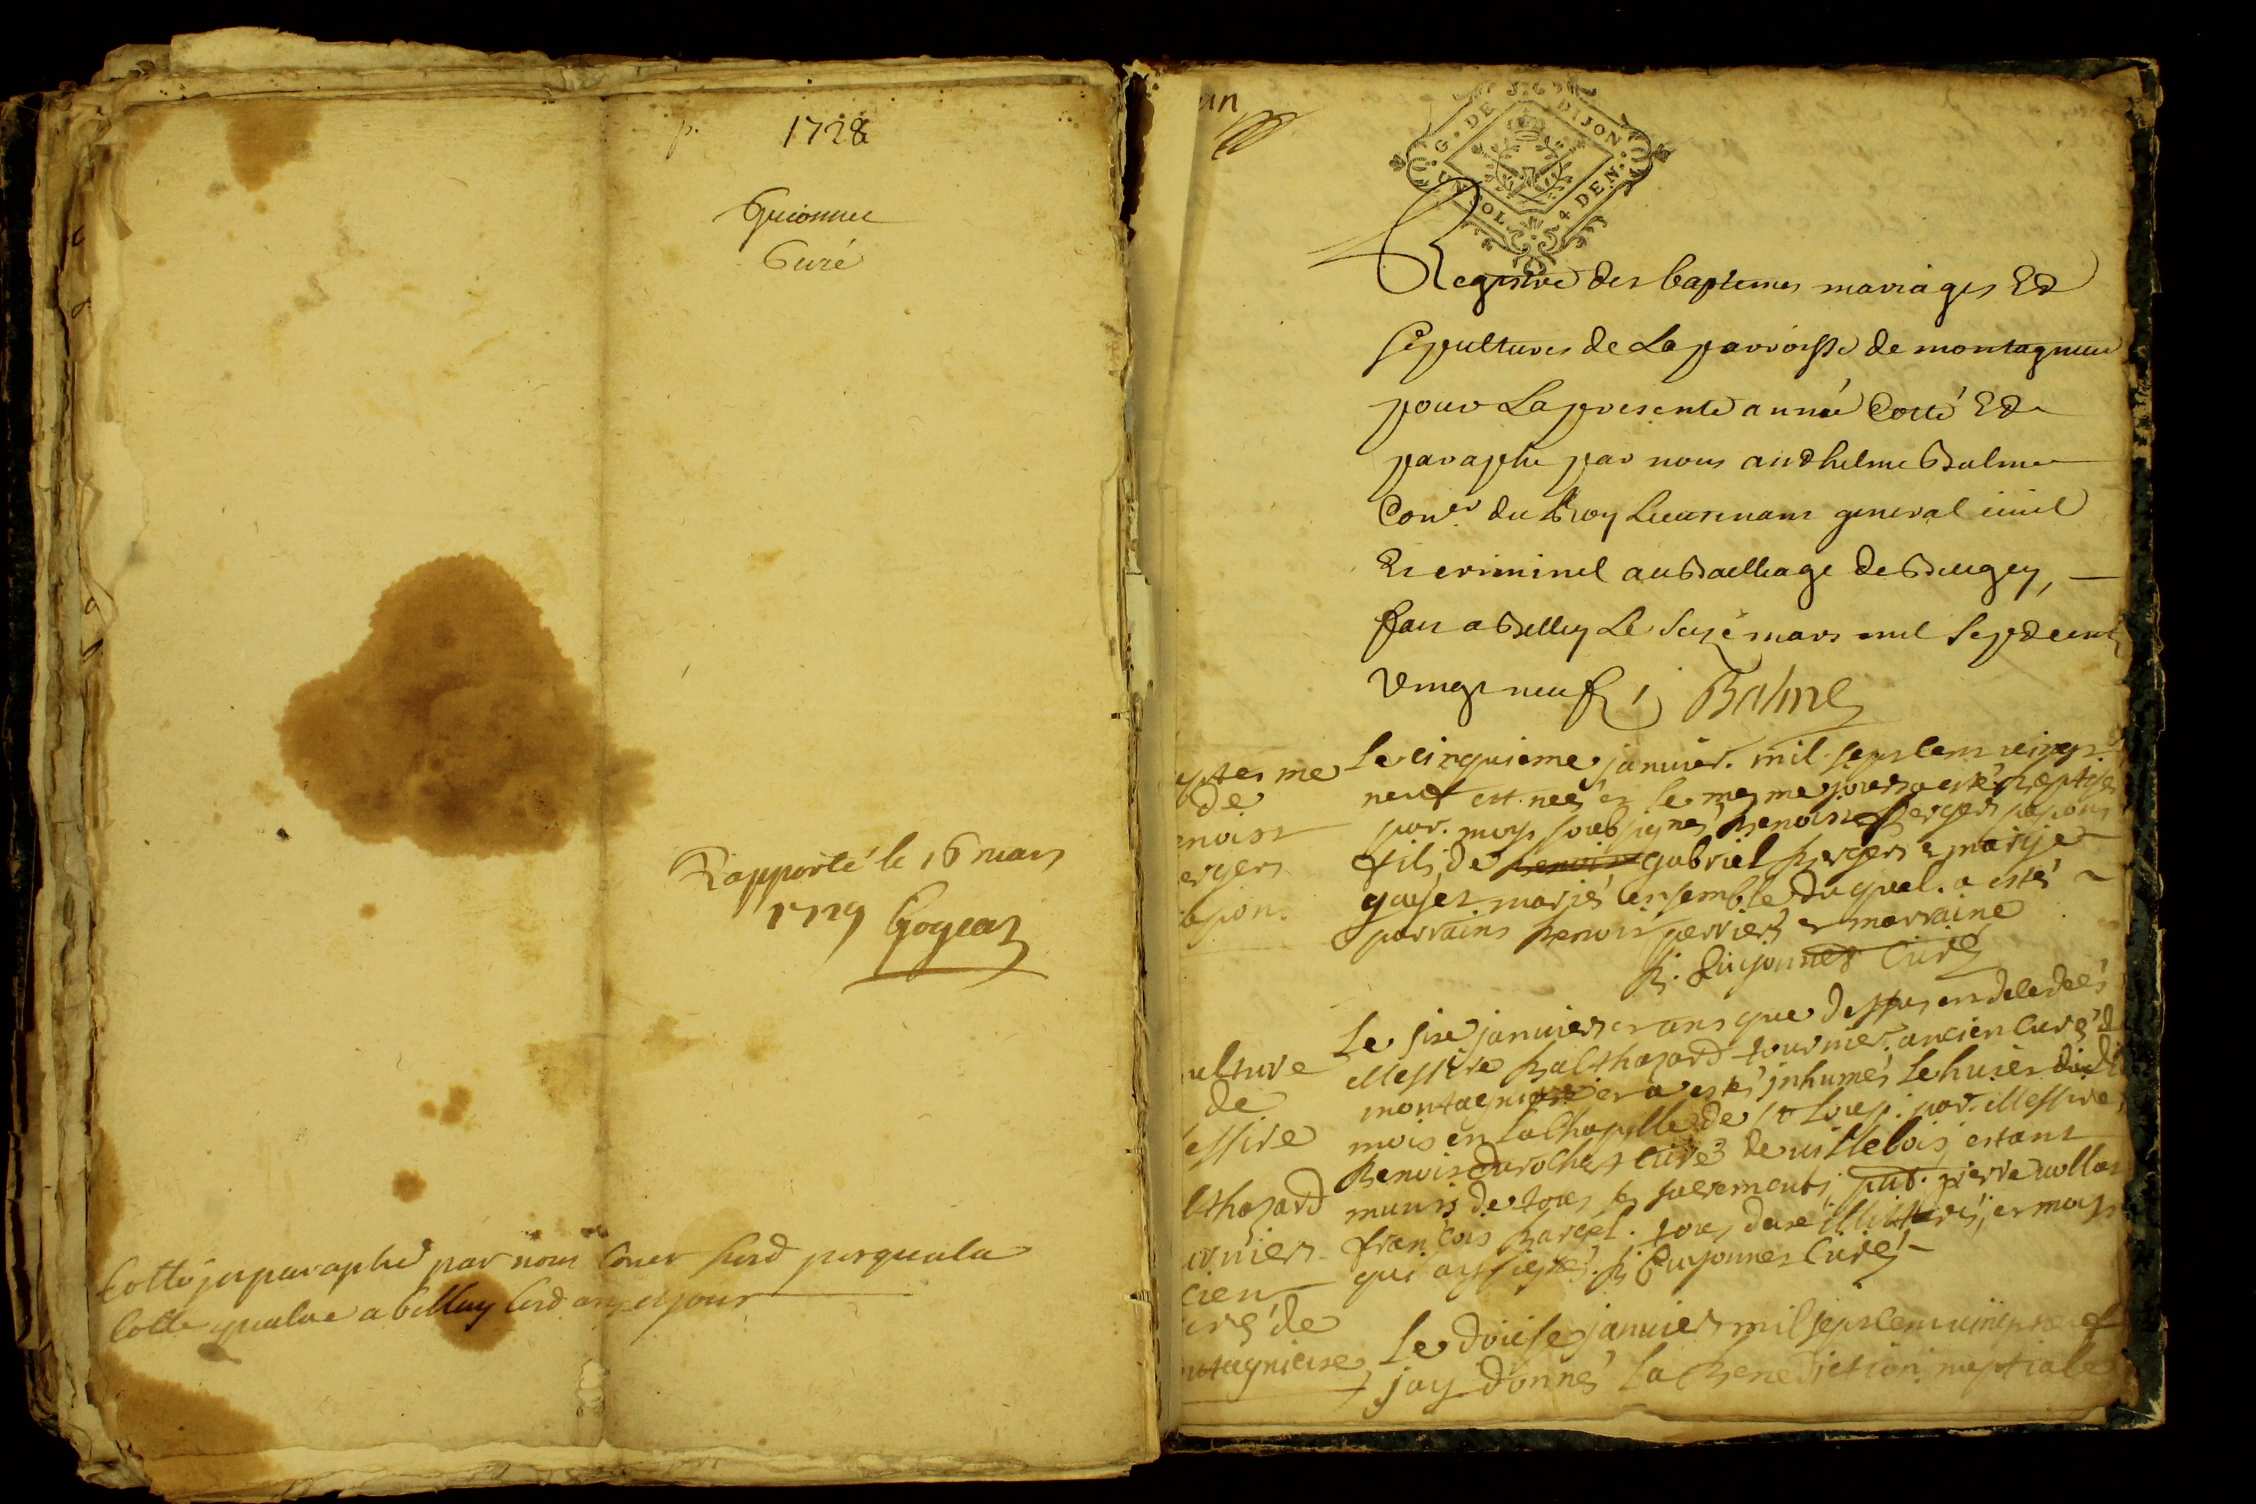 1728
Guionnet
Curé
Rapporté le 16 mars
1729 Gogean
Cotté et paraphé par nous
Cotte a bellay jour
un
G. DE DIJON
UN SOL. 4 DEN.
Registre des baptemes mariages Et
sepultures de La parroisse de montagnieu
pour La presente année Cotté Et
paraphe par nous anthelme Balme
Coner. du Roy Lieutenant general ciuil
Et criminel au Bailliage de Bugey,
fait a Belley Le seize mars mil sept cent
vingt neuf Balme
ptesme
de
enoist
ergers
apon.
Le cinquieme januier. mil sept cent vingt
neuf est neé et le mesme jour a esté baptisé
par. moy soubsigné benoist bergers papons
fils de benoist gabriel bergers et marije
guyet mariés ensemble duquel. a estés
parrains benoist perriers et marraine
B. Guyonnet Curé
ulture
de
essire
lthazard
urniers
cien
uré de
ntagnieuse
Le sixe januiers et ans que dessus est decedés
Messire balthazard tournier. ancien Curé d
montagnieuse et a estés inhumés Le huict dudit
mois en La Chapelle de st Loup. par. Messire
Benoist durochat Curé de uillebois estant
munis de tous les sacrements, pnt. pierre uollat
françois barcel. tous deux illitterés, et moy
qui ay signés. B. Guyonnet Curé
Le douise januiers mil sept cent uingt neuf
jay donnés La Benediction nuptiale